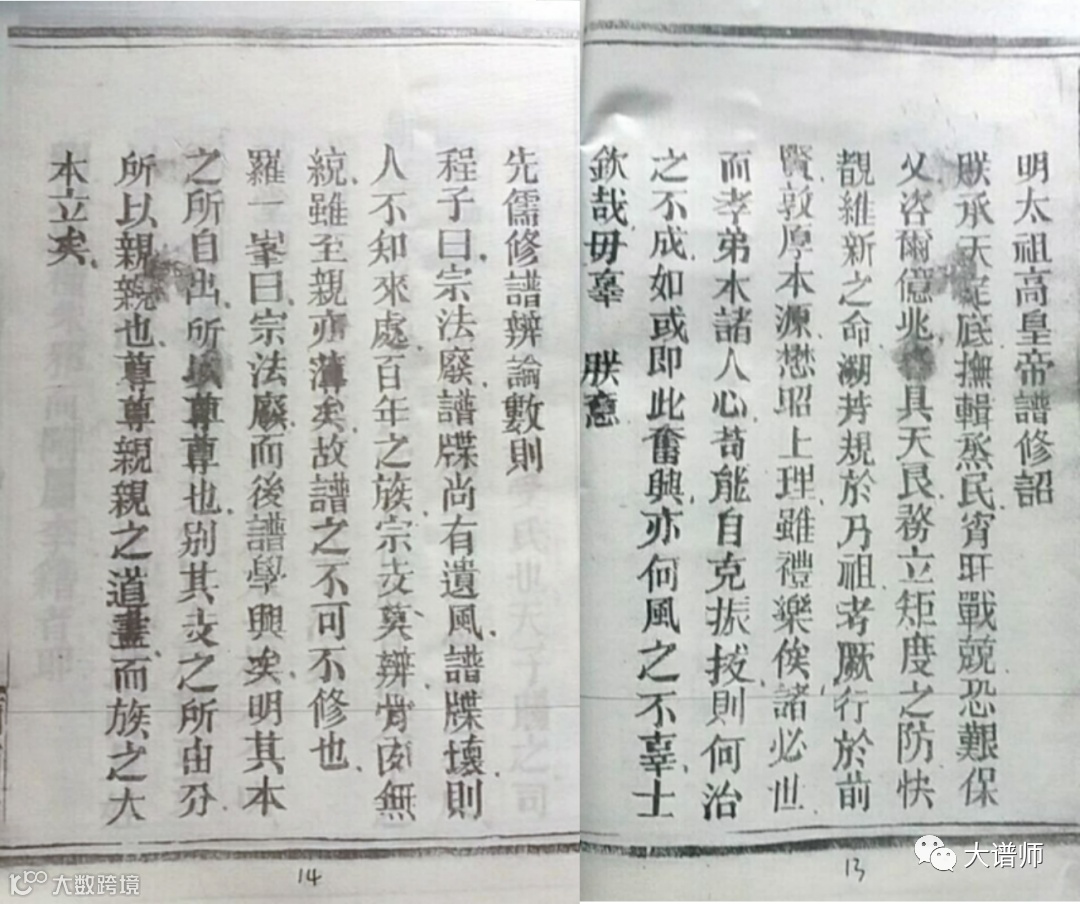 明太祖高皇帝譜修詔
朕承天定底撫輯烝民宵旰戰兢恐艱保
乂咨爾億兆具天良務立矩度之防快
覩維新之命溯芳規於乃祖考厥行於前
賢敦厚本源懋昭上理雖禮樂俟諸必世
而孝弟木諸人心苟能自克振拔則何治
之不成如或即此奮興亦何風之不辜士
欽哉毋辜 朕意
13
先儒修譜辨論數則
程子曰宗法廢譜牒尚有遺風譜牒壞則
人不知來處百年之族宗支莫辨骨肉無
統雖至親亦薄矣故譜之不可不修也
羅一峯曰宗法廢而後譜學興矣明其本
之所自出所以尊尊也别其支之所由分
所以親親也尊尊親親之道盡而族之大
本立矣
14
大谱师
大数跨境